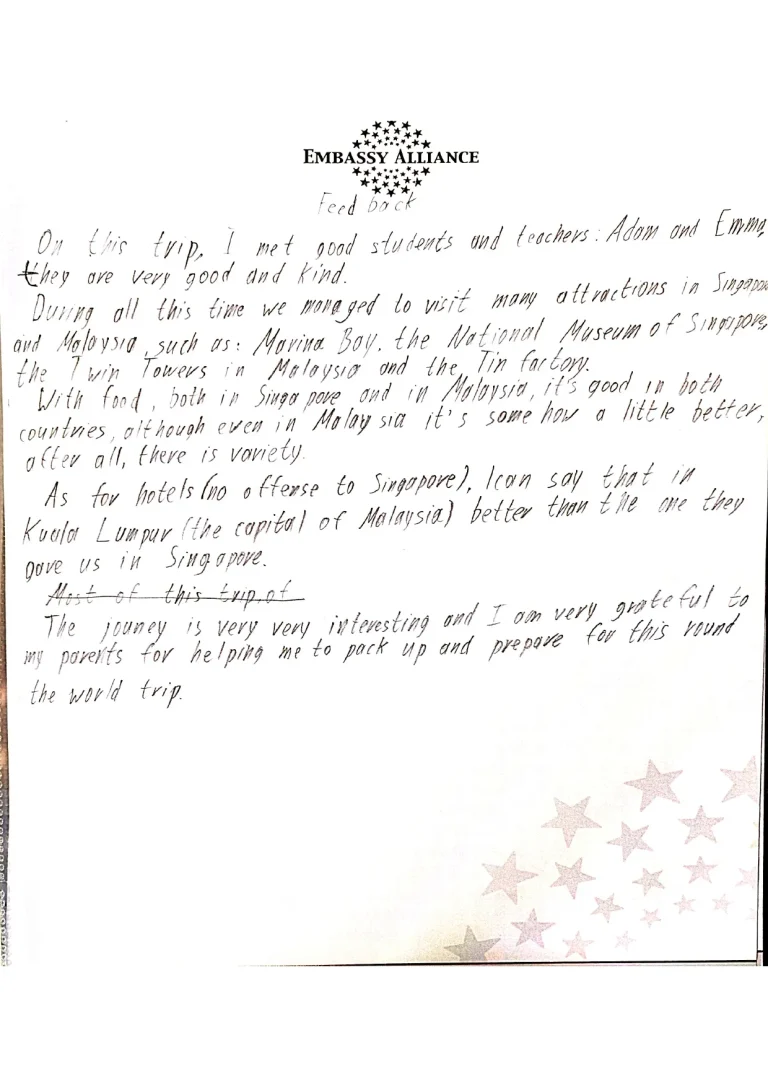 EMBASSY ALLIANCE
Feed back
On this trip, I met good students and teachers: Adam and Emma,
they are very good and kind.
During all this time we managed to visit many attractions in Singapore
and Malaysia such as: Marina Bay, the National Museum of Singapore,
the Twin Towers in Malaysia and the Tin factory.
With food, both in Singa pore and in Malaysia, it's good in both
countries, although even in Malay sia it's some how a little better,
after all, there is variety.
As for hotels (no offense to Singapore), I can say that in
Kuala Lumpur (the capital of Malaysia) better than the one they
gave us in Singapore.
Most of this trip, of
The jouney is very very interesting and I am very grateful to
my parents for helping me to pack up and prepare for this round
the world trip.